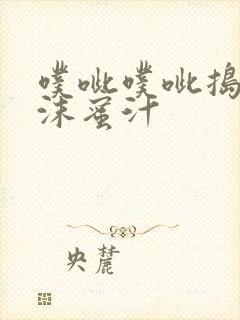 噗呲噗呲捣
沫蜜汁
央麓